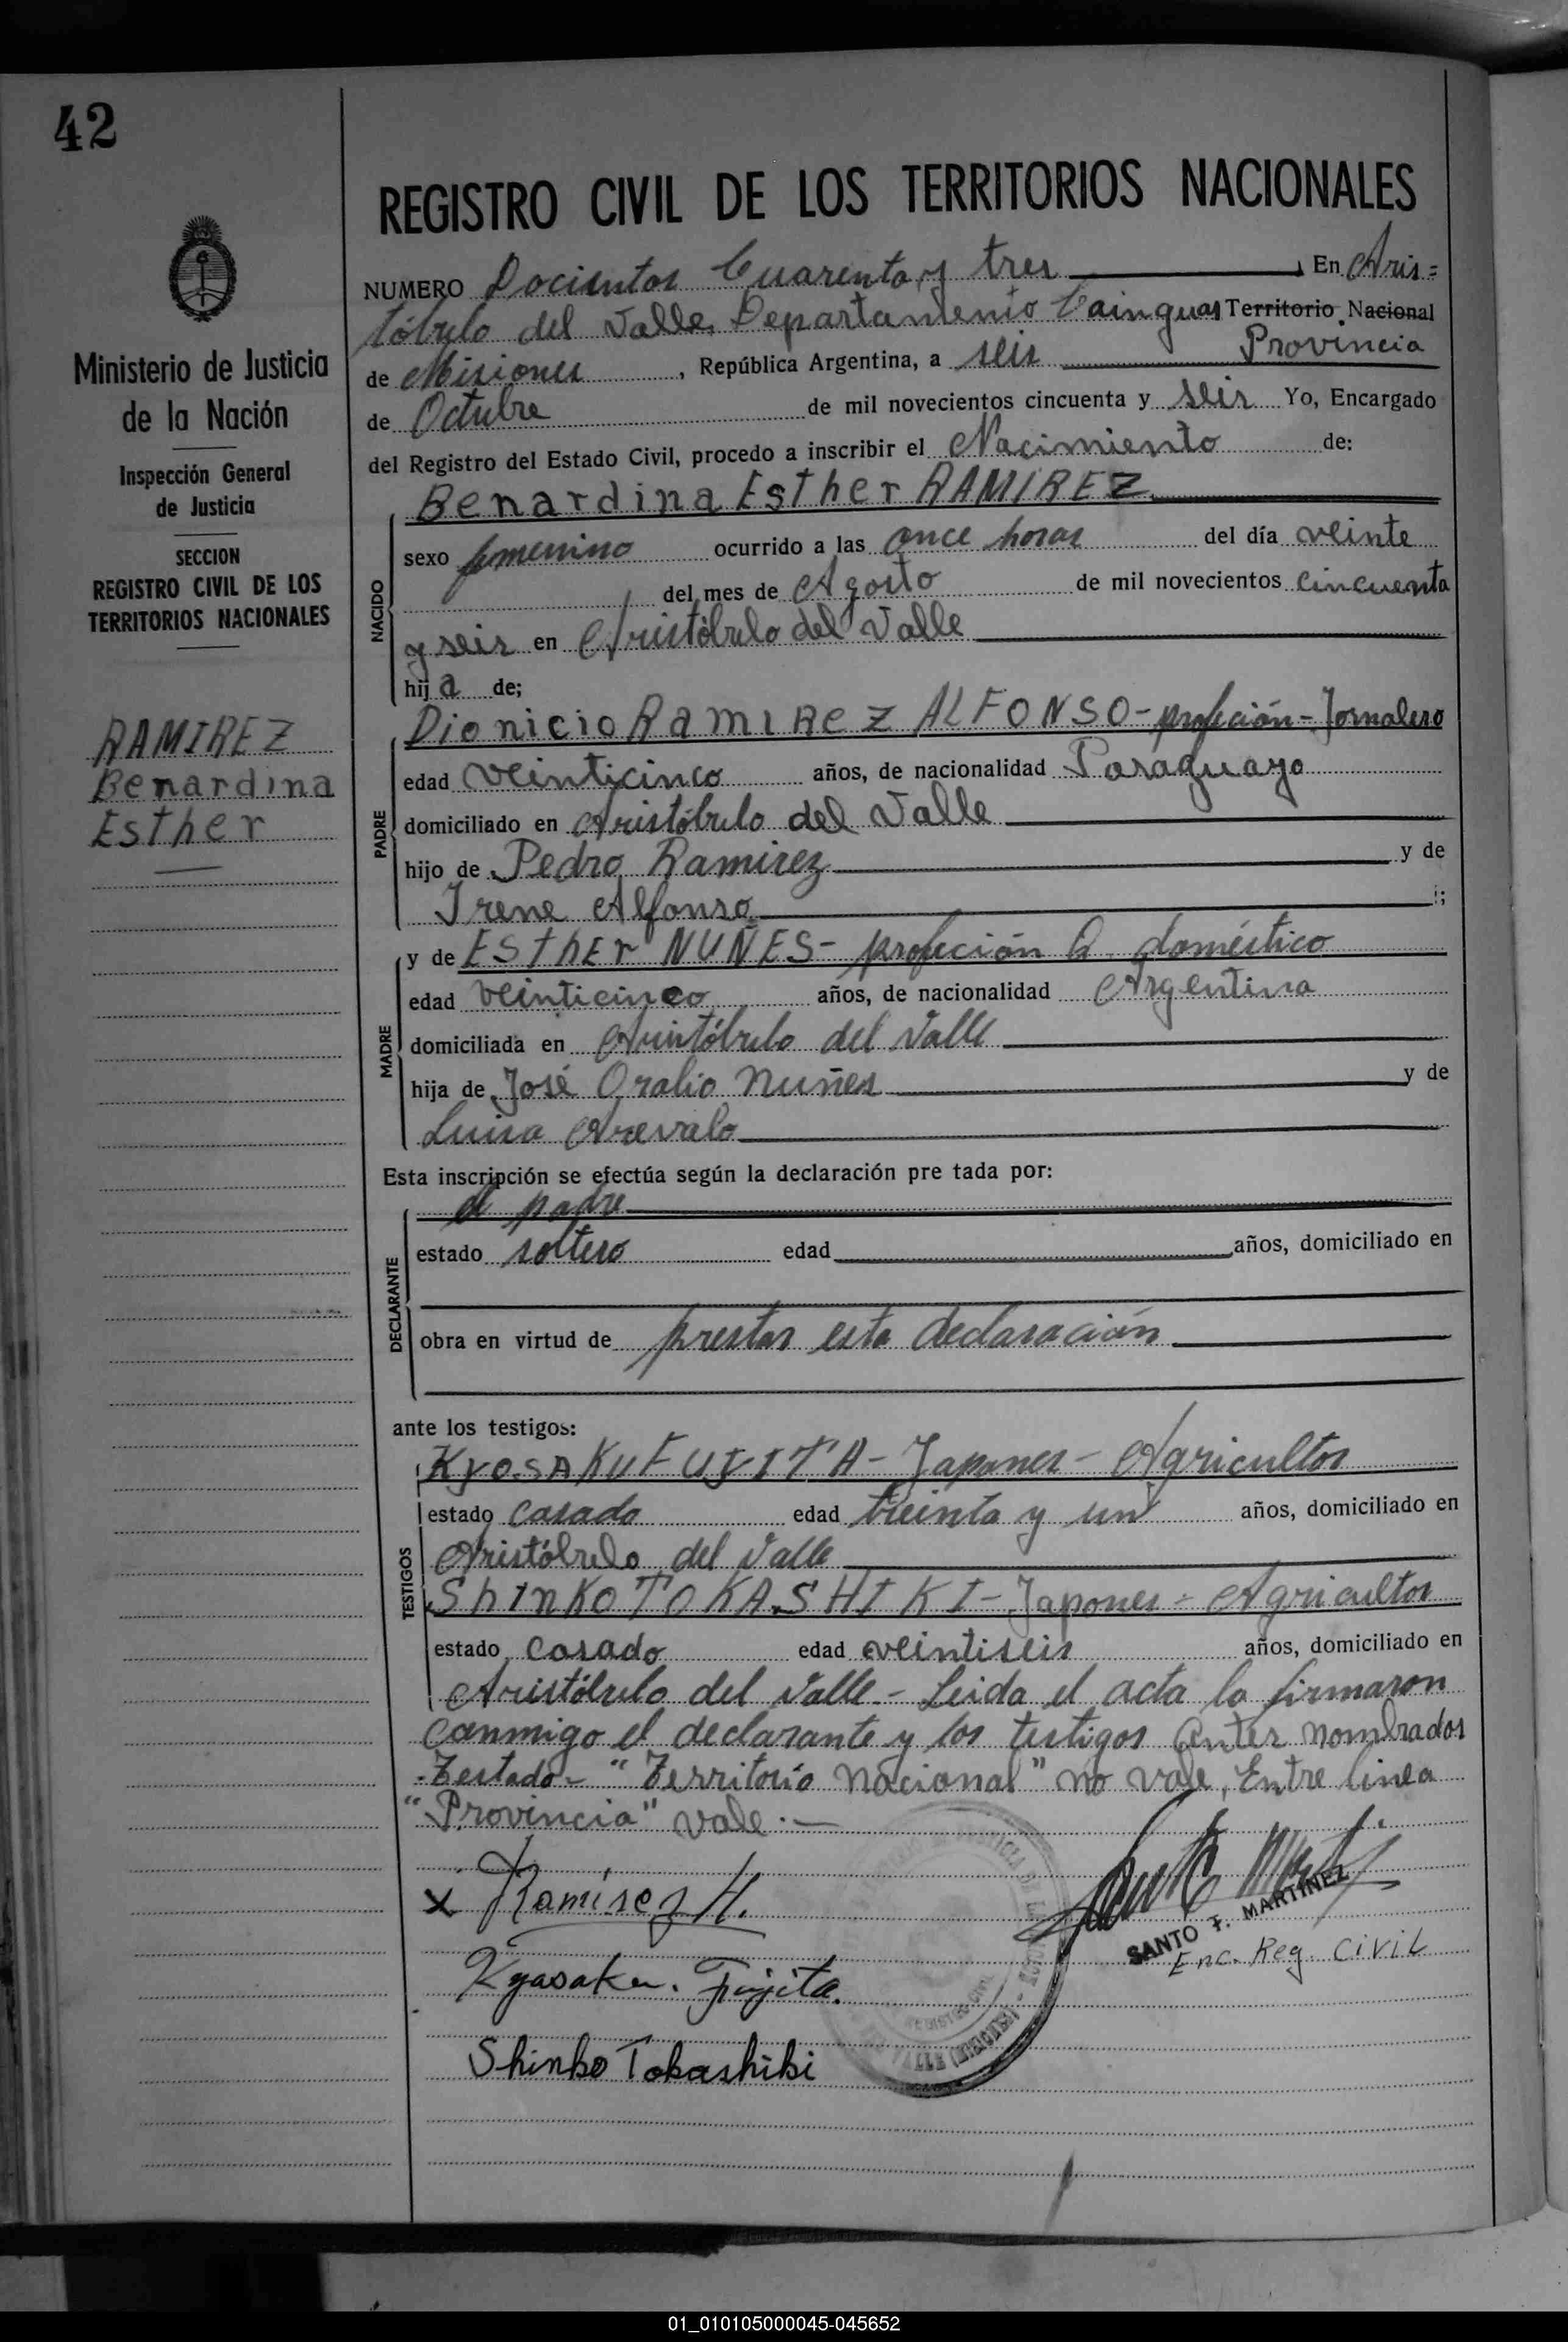 42
Ministerio de Justicia
de la Nación
Inspección General
de Justicia
SECCION
REGISTRO CIVIL DE LOS
TERRITORIOS NACIONALES
RAMIREZ
Benardina
Esther
REGISTRO CIVIL DE LOS TERRITORIOS NACIONALES
NUMERO Docientos Cuarenta y tres, En Aris=
tóbulo del Valle, Departamento Cainguas Territorio Nacional
Provincia
de Misiones, República Argentina, a seis
de Octubre de mil novecientos cincuenta y seis Yo, Encargado
del Registro del Estado Civil, procedo a inscribir el Nacimiento de:
Benardina Esther RAMIREZ
NACIDO
sexo femenino ocurrido a las once horas del día veinte
del mes de Agosto de mil novecientos cincuenta
y seis en Aristóbulo del Valle
hija de;
PADRE
Dionicio RamiRez ALFONSO - profeción - Jornalero
edad veinticinco años, de nacionalidad Paraguayo
domiciliado en Aristóbulo del Valle
hijo de Pedro Ramirez y de
Irene Alfonso;
MADRE
y de Esther NUÑES - profeción Q. doméstico
edad veinticinco años, de nacionalidad Argentina
domiciliada en Aristóbulo del Valle
hija de José Oralio Nuñes y de
Luisa Arevalo
Esta inscripción se efectúa según la declaración pre tada por:
DECLARANTE
el padre
estado soltero edad años, domiciliado en
obra en virtud de prestar esta declaración
ante los testigos:
TESTIGOS
KyosAKu FUJITA - Japones - Agricultor
estado casado edad treinta y un años, domiciliado en
Aristóbulo del Valle
ShinKo TOKASHIKI - Japones - Agricultor
estado casado edad veintiseis años, domiciliado en
Aristóbulo del Valle - Leida el acta la firmaron
conmigo el declarante y los testigos antes nombrados
Testado - "Territorio Nacional" no vale, Entre linea
"Provincia" vale.-
x Ramirez H.
SANTO T. MARTINEZ
Enc. Reg. Civil
Kyosaku. Fujita.
Shinko Tokashiki
REGISTRO CIVIL
01_010105000045-045652